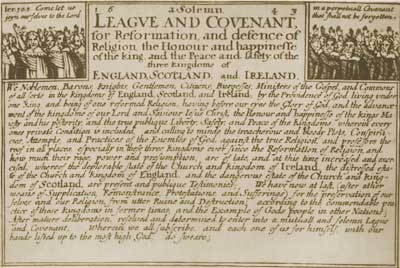 Ier. 50.5 Come let us
joyn ourselves to the Lord
in a perpetuall Covenant
that shall not be forgotten.
16 43
a Solemn
LEAGVE AND COVENANT,
for Reformation, and defence of
Religion, the Honour and happinesse
of the king, and the Peace and safety of the
three kingdoms of
ENGLAND, SCOTLAND, and IRELAND.
We Noblemen, Barons, Knights, Gentlemen, Citizens, Burgesses, Ministers of the Gospel, and Commons
of all sorts in the kingdoms of England, Scotland, and Ireland, by the Providence of God living under
one King, and being of one reformed Religion, having before our eyes the Glory of God, and the advance-
ment of the kingdome of our Lord and Saviour Iesus Christ, the Honour and happinesse of the kings Ma-
iesty and his posterity, and the true publique Liberty, Safety, and Peace of the kingdoms, wherein every
ones private Condition is included, and calling to minde the treacherous and bloody Plots, Conspira-
cies, Attempts, and Practices of the Enemies of God, against the true Religion, and professors ther-
of in all places, especially in these three kingdoms ever since the Reformation of Religion, and
how much their rage, power and presumption, are of late, and at this time increased and exer-
cised; whereof the deplorable state of the Church and kingdom of Ireland, the distressed esta-
te of the Church and kingdom of England, and the dangerous estate of the Church and king-
dom of Scotland, are present and publique Testimonies; We have now at last, after other
means of Supplication, Remonstrance, Protestations, and Sufferings, for the preservation of our
selves and our Religion, from utter Ruine and Destruction; according to the commendable pra-
ctice of these kingdoms in former times, and the Example of Gods people in other Nations;
After mature deliberation, resolved and determined to enter into a mutuall and solemn League
and Covenant, Wherein we all subscribe, and each one of us for himself, with our
hands lifted up to the most high God, do sweare;